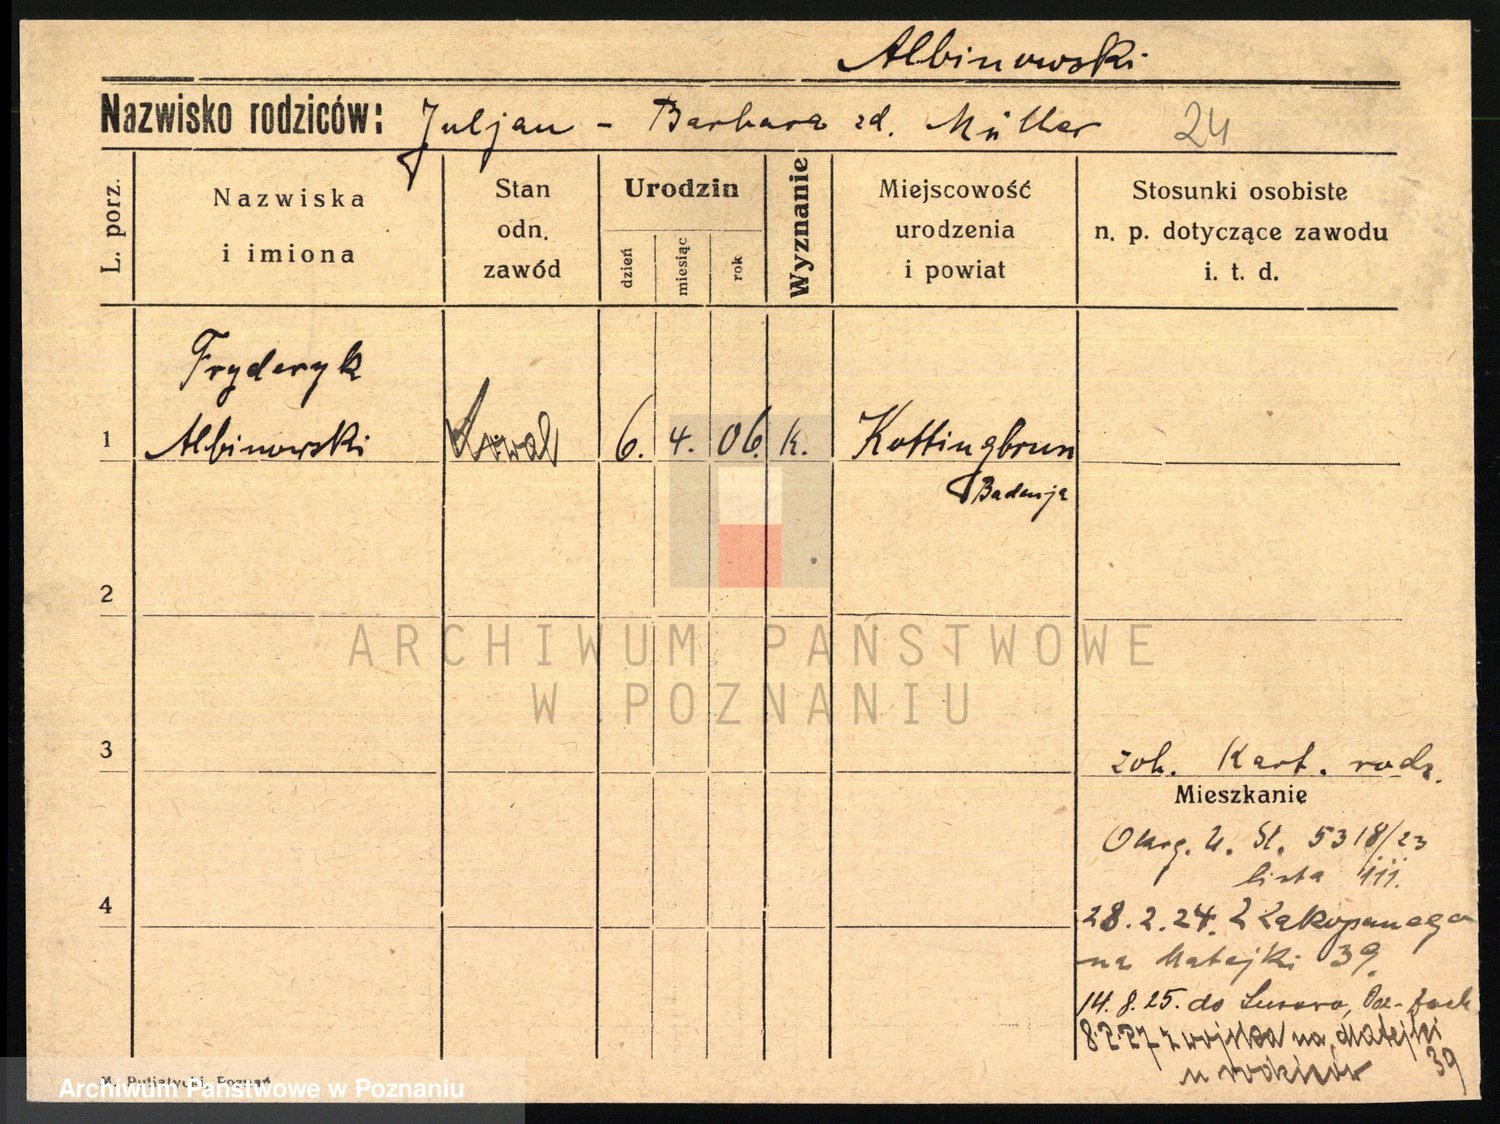 Albinowski
Nazwisko rodziców: Juljan - Barbara zd. Müller 24
L. porz.
Nazwiska
i imiona
Stan
odn.
zawód
Urodzin
dzień
miesiąc
rok
Wyznanie
Miejscowość
urodzenia
i powiat
Stosunki osobiste
n. p. dotyczące zawodu
i. t. d.
Fryderyk
1 Albinowski Kowal 6. 4. 06. k. Kottingbrun
Badenja
2
ARCHIWUM PAŃSTWOWE
W POZNANIU
3
zob. Kart. rodz.
Mieszkanie
Okrg. U. St. 5318/23
lista III.
4
28.2.24. Z Zakopanego
na Matejki 39.
14.8.25. do
8.2.27 z wojska na Matejki
39
u rodziców
Poznań
Archiwum Państwowe w Poznaniu